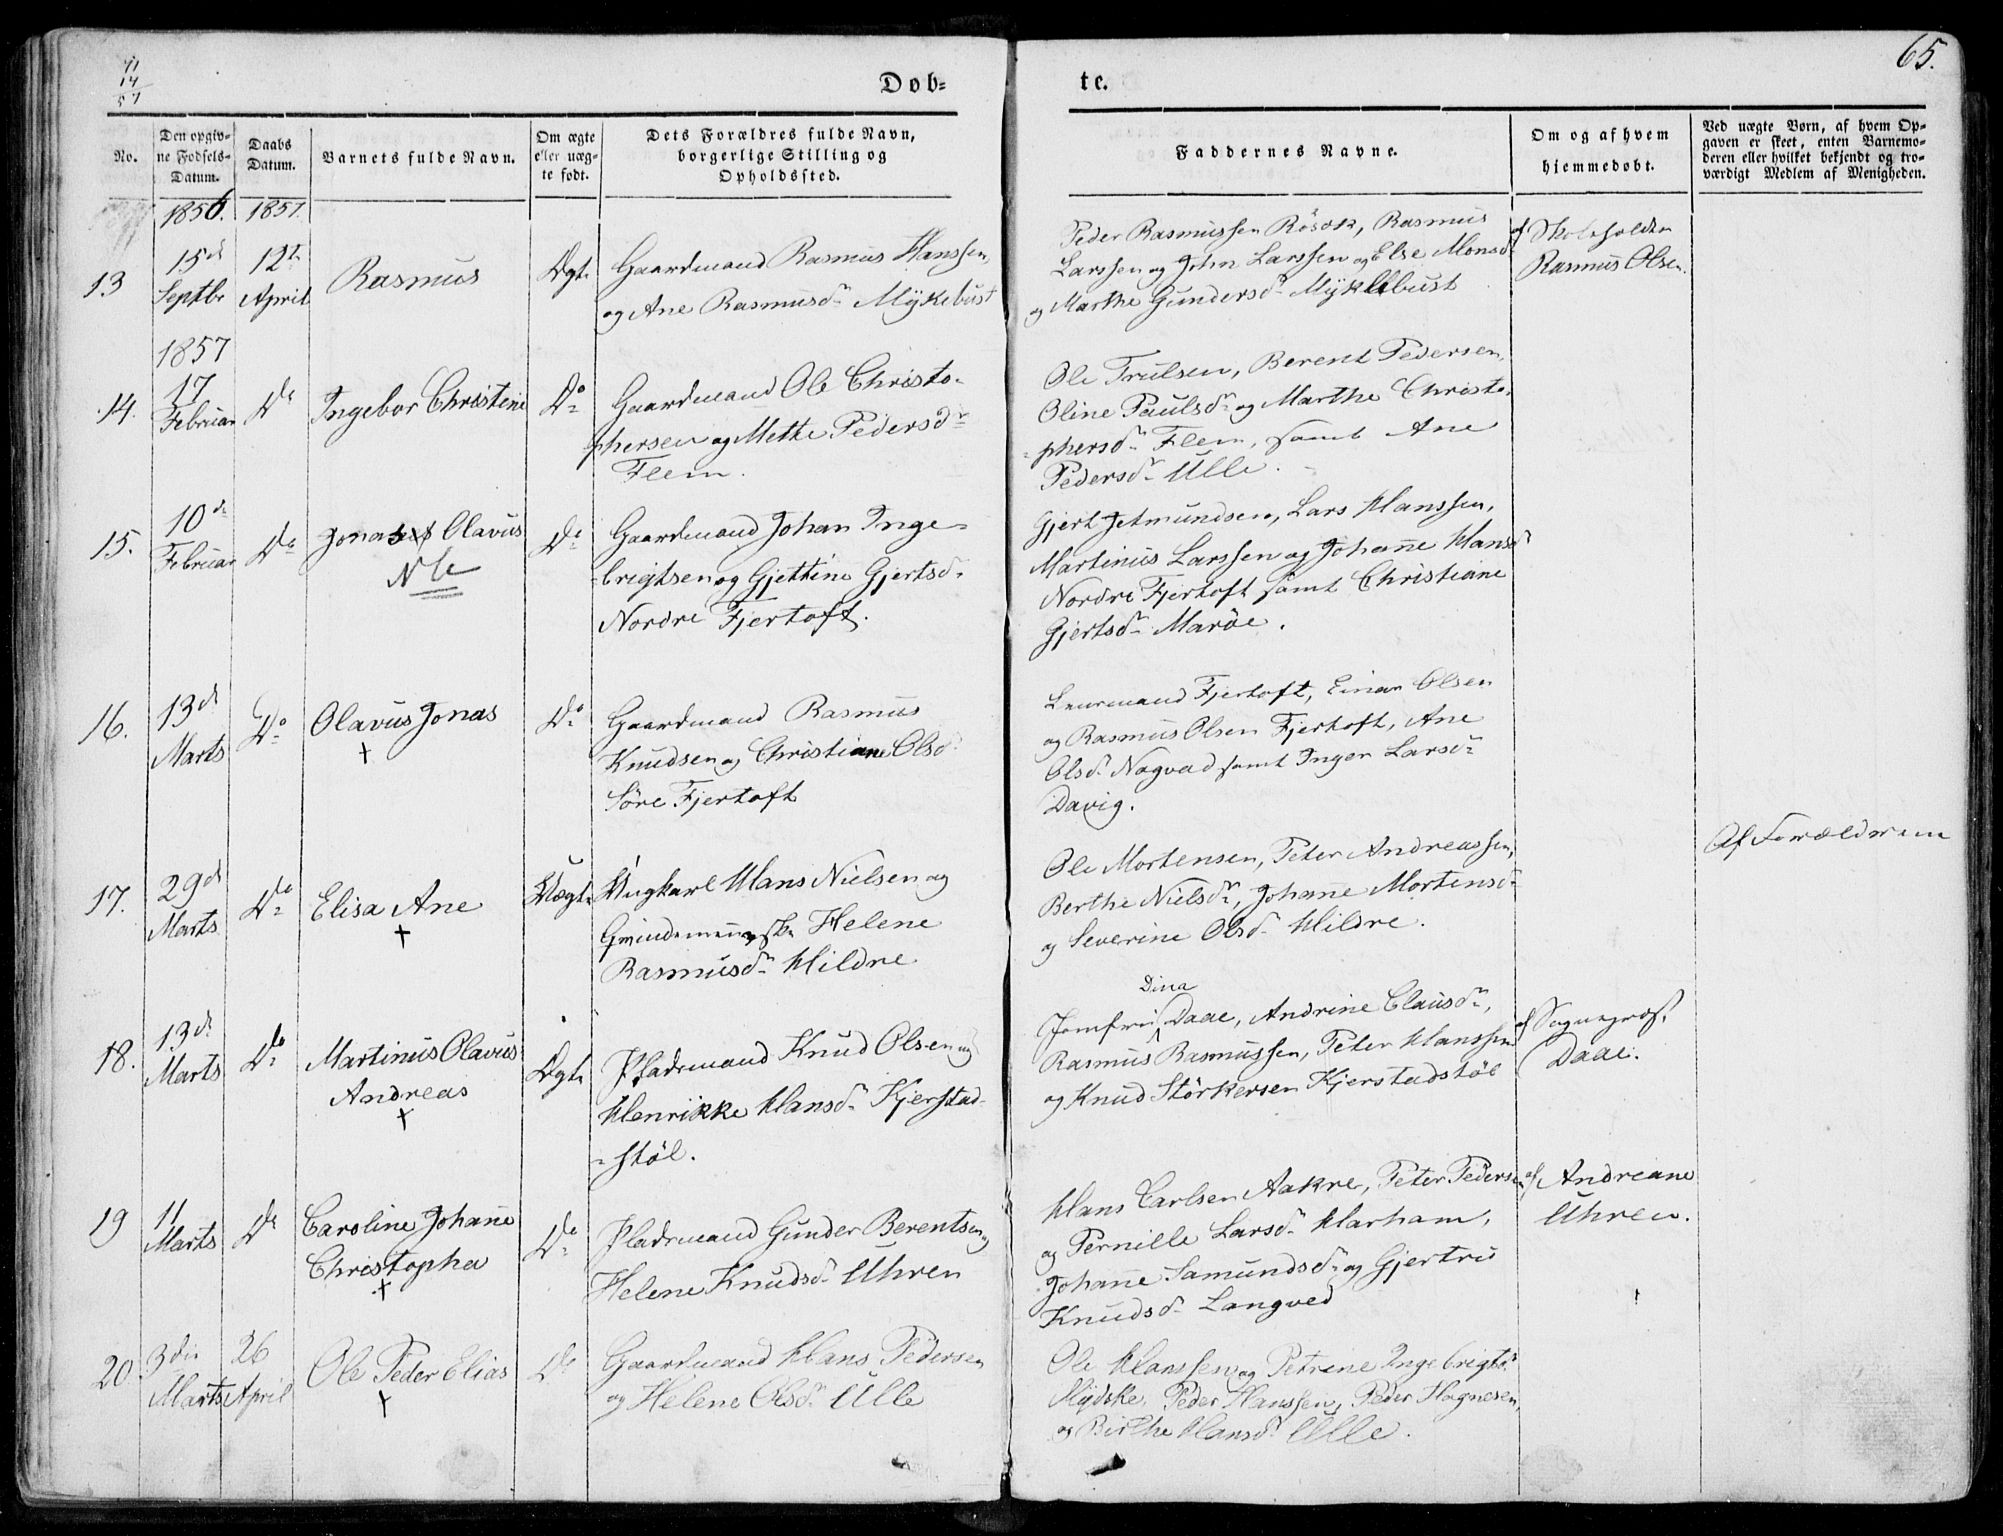 11
14
57
Dob=
te.
65.
No.
Den opgiv=
ne Fodsels=
Datum.
Daabs
Datum.
Barnets fulde Navn.
Om ægte
eller uæg=
te født.
Dets Forældres fulde Navn,
borgerlige Stilling og
Opholdssted.
Faddernes Navne.
Om og af hvem
hjemmedøbt.
Ved uægte Børn, af hvem Op=
gaven er skeet, enten Barnemo=
deren eller hvilket bekjendt og tro=
værdigt Medlem af Menigheden.
1856. 1857.
13
15de
Septbr
12te
April
Rasmus
Ægte
Gaardmand Rasmus Hanssen,
og Ane Rasmusdr Mÿkebust
Peder Rasmussen Rösok, Rasmus
Larssen og John Larssen og Else Monsdr
og Marthe Gundersdr Mÿklebust
af Skoleholder
Rasmus Olsen.
1857
14.
17
Februar
Do
Ingebor Christine
Do
Gaardmand Ole Christo-
phersen og Mette Pedersdr
Flem.
Ole Trulsen, Berent Pedersen,
Oline Paulsdr og Marthe Christo-
phersdr Flem, samt Ane
Pedersdr Ulle.
15.
10de
Februar
Do
Jonas Olavus
Nb
Do
Gaardmand Johan Inge-
brigtsen og Gjettine Gjertsdr
Nordre Fjertoft.
Gjert Jetmundsen, Lars Hanssen,
Martinus Larssen og Johanne Hansdr
Nordre Fjertoft samt Christiane
Gjertsdr Maröe.
16.
13de
Marts
Do
Olavus Jonas
†
Do
Gaardmand Rasmus
Knudsen og Christiane Olsdr
Söre Fjertoft
Fjertoft, Einar Olsen
og Rasmus Olsen Fjertoft, Ane
Olsdr Nogvad samt Inger Larsdr
Davig.
17.
29de
Marts
Do
Elisa Ane
†
Uægte
Ungkarl Hans Nielsen og
Qvindemenneske Helene
Rasmusdr Hildre
Ole Mortensen, Peter Andreassen,
Berthe Nielsdr, Johanne Mortensdr
og Severine Olsdr Hildre.
Af Forældrene
18.
13de
Marts
Do
Martinus Olavus
Andreas
†
Ægte
Pladsmand Knud Olsen og
Henrikke Hansdr Kjerstad-
-støl.
Dina
Jomfru Daae, Andrine Clausdr,
Rasmus Rasmussen, Peter Hanssen
og Knud Störkersen Kjerstadstöl
af Sognepræst
Daae.
19
11
Marts
Do
Caroline Johanne
Christopha
†
Do
Pladsmand Gunder Berentsen og
Helene Knudsdr Uhren
Hans Carlsen Aakre, Peter Pedersen
og Pernille Larsdr Harham,
Johanne Samundsdr og Gjertru
Knudsdr Langved
af Andreane
Uhren.
20
3die
Marts
26
April
Ole Peder Elias
†
Do
Gaardmand Hans Pedersen
og Helene Olsdr Ulle
Ole Hanssen og Petrene Ingebrigtsdr
Peder Hanssen, Peder Hagnesen,
og Birthe Hansdr Ulle.